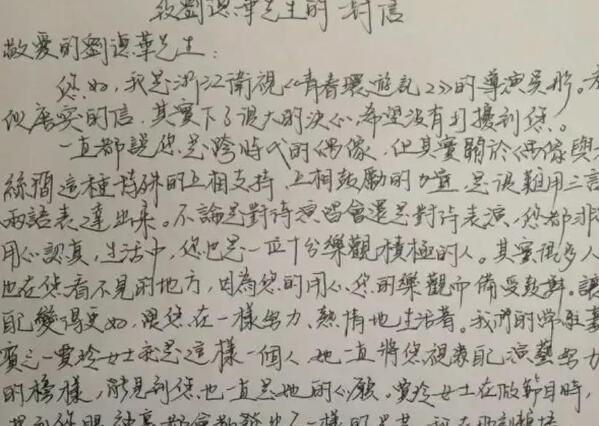 致劉德華先生的一封信
敬愛的劉德華先生：
您好，我是浙江衛視《青春環遊記2》的導演吳彤。
似唐突的信，其實下了很大的決心，希望沒有打擾到您。
一直都說您是跨時代的偶像，但其實關於偶像與
絲間這種特殊的互相支持、互相鼓勵的力量，是很難用三言
兩語表達出來。不論是對待演唱會還是對待表演，您都非
用心認真，生活中，您也是一位十分樂觀積極的人。其實很多人
也在您看不見的地方，因為您的用心、您的樂觀而備受鼓舞。讓
自己變得更好，跟您在一樣努力、熱情地生活著。我們的常駐嘉
賓之一賈玲女士就是這樣一個人，她一直將您視為自己演藝努力
的榜樣，能見到您也一直是她的心願。賈玲女士在做節目時，